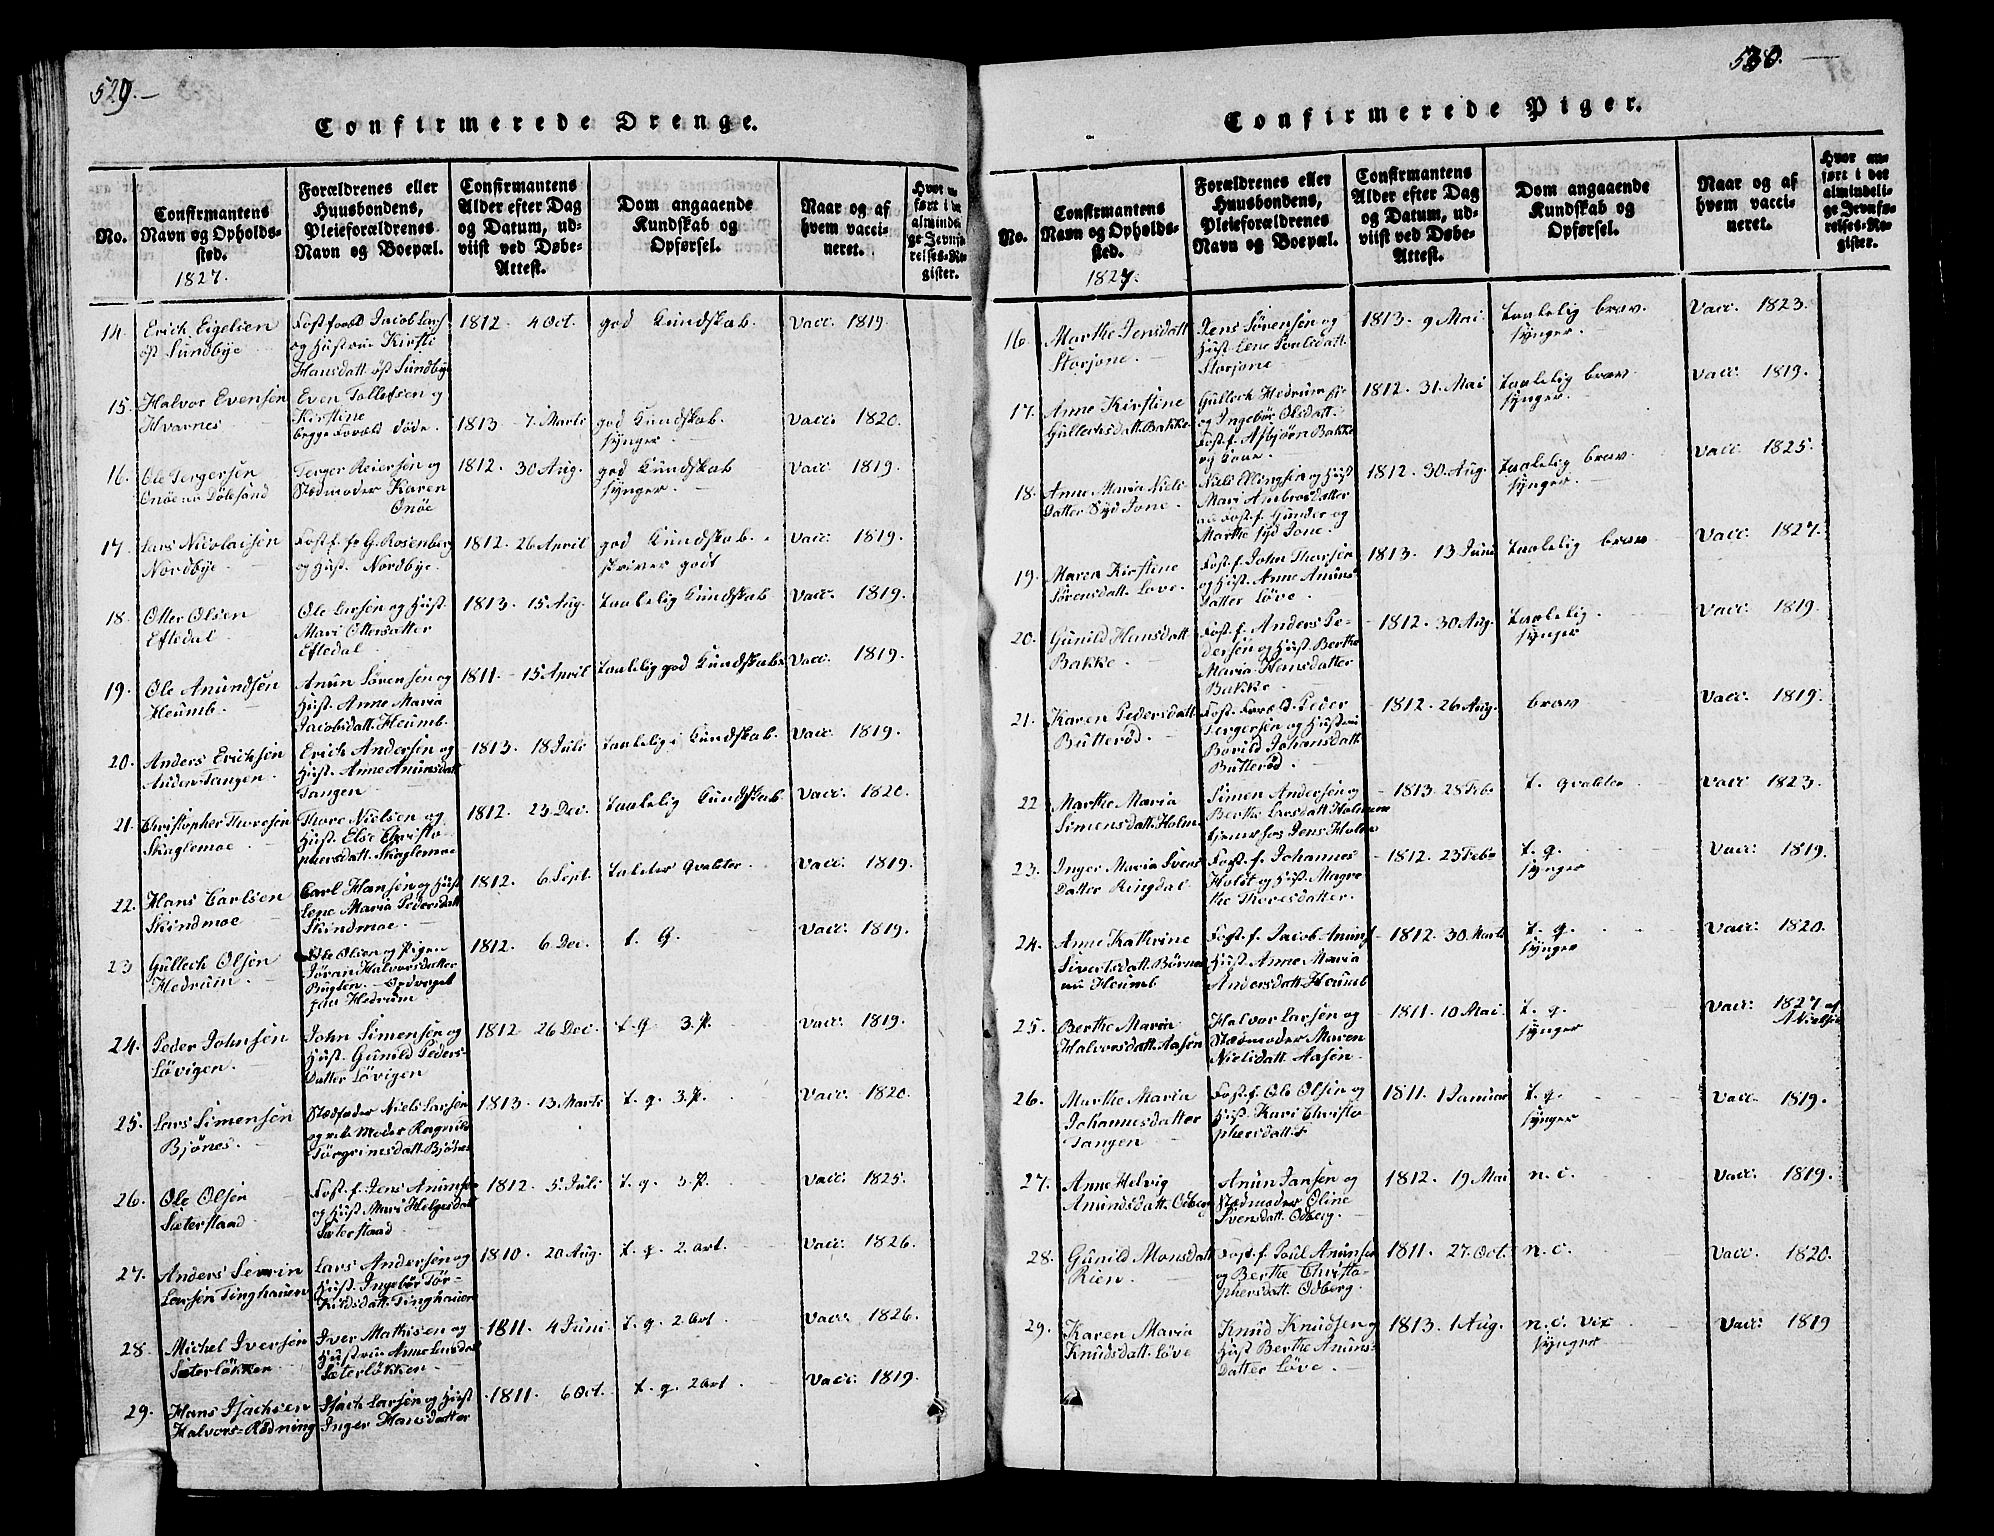 529.—
Confirmerede Drenge.
No.
Confirmantens
Navn og Opholds-
sted.
1827.
Forældrenes eller
Huusbondens,
Pleieforældrenes
Navn og Boepæl.
Confirmantens
Alder efter Dag
og Datum, ud-
viist ved Døbe-
Attest.
Dom angaaende
Kundskab og
Opførsel.
Naar og af
hvem vacci-
neret.
14. Erich Eigelsen
øst Sundbye
Fostforæld Jacob Lars
og Hustrue Kirsti
Hansdatt. øst Sundby
1812. 4 Oct.
god Kundskab.
Vacc. 1819.
15. Halvor Evensen
Hvarnes
Even Tollefsen og
Kirstine
begge Foræld døde.
1813. 7. Marts
god Kundskab.
synger.
Vacc. 1820.
16. Ole Tergersen
Onöe nu Dölesand
Terger Reiersen og
Stedmoder Karen
Onöe
1812. 30 Aug.
god Kundskab
synger.
Vacc. 1819.
17. Lars Nicolaisen
Nordbye.
Fost.f. Fr G. Rosenberg
og Hust. Nordbye.
1812. 26 April
god Kundskab.
skriver godt
Vacc. 1819.
18. Otter Olsen
Eftedal
Ole Larsen og Hust.
Mari Ottersdatter
Eftedal
1813. 15 Aug.
taalelig Kundskab
Vacc. 1819.
19. Ole Anundsen
Heumb.
Anun Sørensen og
Hust. Anne Maria
Jacobsdatt. Heumb.
1811. 15 April
taalelig god Kundskab
Vacc. 1819.
20. Anders Erichsen
Tangen.
Erich Andersen og
Hust. Anne Anunsdatt
Tangen
1813. 18 Juli
taalelig Kundskab.
Vacc. 1819.
21. Christopher Thoresen
Skaglemoe
Thore Nielsen og
Hust. Else Christo-
phersdatt. Skaglemoe
1812. 23 Dec.
taalelig Kundskab
Vacc. 1820.
22. Hans Carlsen
Skindmoe
Carl Hansen og Hust
Lene Maria Pedersdatt
Skindmoe
1812. 6 Sept.
Vacc. 1819.
23 Gullech Olsen
Hedrum.
Ole Olsen og Pigen
Jøran Halvorsdatter
Bugten. Opdraget
paa Hedrum
1812. 6 Dec.
t. g.
Vacc. 1819.
24. Peder Johnsen
Lövigen.
John Simensen og
Hust. Gunild Peders-
datter Lövigen
1812 26 Dec.
t. g. 3.P.
Vacc. 1819.
25. Lars Simensen
Bjönes.
Stedfader Niels Larsen
og rette Moder Ragnild
Torgrimsdatt. Bjönes
1813. 13 Marts
t. g. 3.P.
Vacc. 1820.
26. Ole Olsen
Sæterstaad
Fost.f. Jens Anunsen
og Hust. Mari Helgesdatt
Sæterstaad
1812. 5 Juli
t. g. 3.P.
Vacc. 1825.
27. Anders Severin
Larsen Tinghauen
Lars Andersen og
Hust. Ingebör Tör-
kildsdatt. Tinghauen
1810. 20 Aug.
t. g. 2. art.
Vacc. 1826.
28. Michel Iversen
Sæterløkken
Iver Mathisen og
Hustrue Anne Larsdat
Sæterløkken
1811. 4 Juni
t. g. 2 Art
Vacc. 1826.
29. Hans Isachsen
Halvors-Rødning
Isach Larsen og Hust
Inger Hansdatter
1811. 6 Oct.
t. g. 2 Art
Vacc. 1819.
530.—
Confirmerede Piger.
No.
Confirmantens
Navn og Opholds-
sted.
1827.
Forældrenes eller
Huusbondens,
Pleieforældrenes
Navn og Boepæl.
Confirmantens
Alder efter Dag
og Datum, ud-
viist ved Døbe-
Attest.
Dom angaaende
Kundskab og
Opførsel.
Naar og af
hvem vacci-
neret.
Hvor an-
ført i det
almindeli-
ge Jevnfø-
relses-Re-
gister.
16 Marthe Jensdatt
Storjone.
Jens Sörensen og
Hust. Lene Poulsdatt.
Storjone
1813. 9 Mai
taalelig brav.
synger.
Vacc. 1823.
17. Anne Kirstine
Gullechsdatt. Bakke
Gullech Hedrum
og Ingebör Olsdatt.
Fost.f. Asbjörn Bakke
og Kone.
1812. 31. Mai
taalelig brav
synger.
Vacc. 1819.
18. Anne Maria Niels
datter Syd Jone.
Mari Ambrosdatter
nu Fost.f. Gunder og
Marthe syd Jone.
1812. 30 Aug.
taalelig brav
synger.
Vacc. 1825.
19. Maren Kirstine
Sörensdatt. Löve.
Fost.f. John Thorsen
og Hust. Anne Anuns-
datter Löve.
1813. 13 Juni
taalelig brav
Vacc. 1827.
20. Gunild Hansdatt
Bakke.
Fost.f. Anders Pe-
dersen og Hust Berthe
Maria Hansdatter
Bakke.
1812. 30 Aug.
taalelig.
synger
Vacc. 1819.
21. Karen Pedersdatt.
Butteröd.
Fost. Foræld. Peder
Tergersen og Hustrue
Borild Johansdatt.
Butteröd.
1812. 26 Aug.
brav
Vacc. 1819.
22 Marthe Maria
Simensdatt. Holm
Simen Andersen og
Berthe Larsdatt. Holm
tjener hos Jens Holm
1813. 28 Feb
Vacc. 1823.
23. Inger Maria Svens
datter Ringdal
Fost.f. Johannes
Holst og Hust. Magre-
the Thoresdatter.
1812. 23 Feb
t. g.
synger
Vacc. 1819.
24. Anne Kathrine
Sivertsdatt. Börnes
nu Heumb
Fost.f. Jacob Anuns
Hust. Anne Maria
Andersdatt. Heumb
1812. 30 Marts
t. g.
synger
Vacc. 1820.
25. Berthe Maria
Halvorsdatt. Aasen
Halvor Larsen og
Stedmoder Maren
Nielsdatt. Aasen.
1811. 10 Mai
t. g.
synger
Vacc. 1827 af
A Nielsen
26. Marthe Maria
Johannesdatter
Tangen
Fost.f. Ole Olsen og
Hust. Kari Christo-
phersdatt.
1811. 1 Januar
t. g.
synger
Vacc. 1819.
27. Anne Helvig
Anundsdatt. Odberg
Anun Jansen og
Stedmoder Oline
Svensdatt. Odberg.
1812. 19 Mai
n. c.
Vacc. 1819.
28. Gunild Monsdatt
Rien.
Fost.f. Poul Anunsen
og Berthe Christo-
phersdatt. Odberg.
1811. 27. Oct.
n. c.
Vacc. 1820.
29. Karen Maria
Knudsdatt. Löve
Knud Knudsen og
Hust Berthe Anuns-
datter Löve.
1813. 1 Aug.
n. c. vix
synger
Vacc. 1819